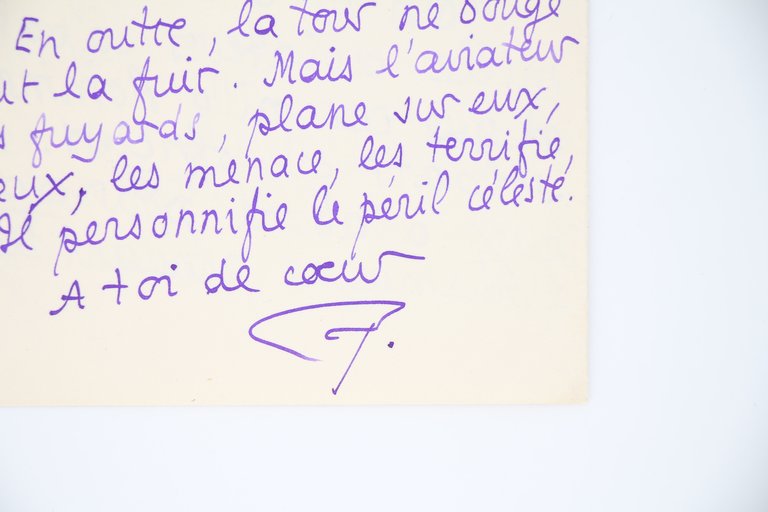 En outre, la tour ne bouge
ut la fuir. Mais l'aviateur
s fuyards, plane sur eux,
eux, les menace, les terrifie,
Il personnifie le péril céleste.
A toi de cœur
T.